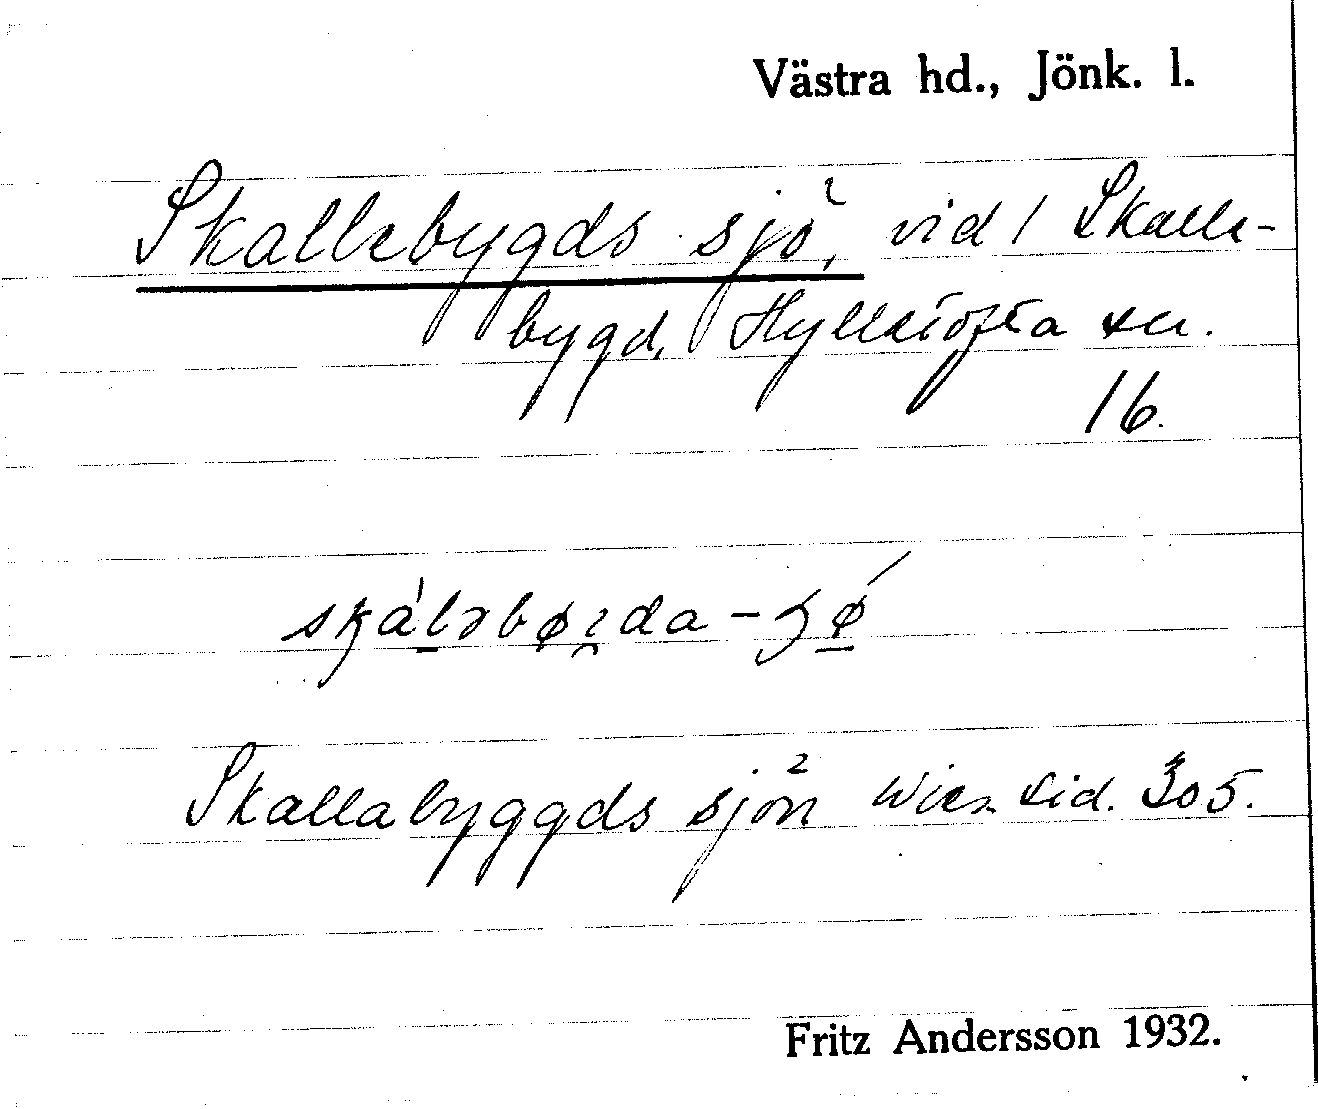 Västra hd., Jönk. l.
Skallebygds sjö, vid 1 Skalle-
bygd, Hylletofta sn.
16.
Skallabyggds sjön Wies. sid. 305.
Fritz Andersson 1932.